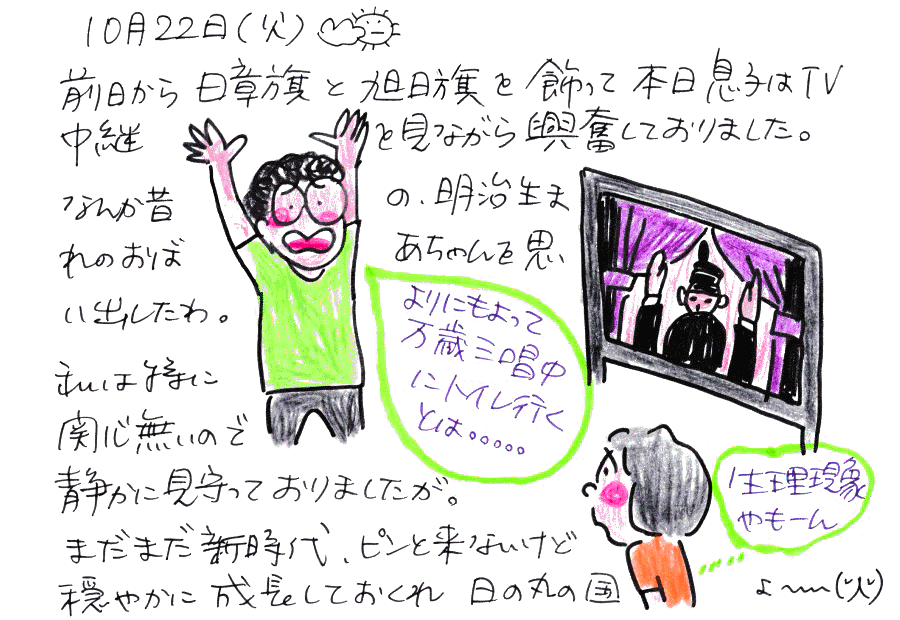 10月22日(火)
前日から日章旗と旭日旗を飾って本日息子はTV
中継を見ながら興奮しておりました。
なんか昔の、明治生ま
れのおばあちゃんを思
い出したわ。
よりにもよって
万歳三唱中
にトイレ行く
とは。。。。。
私は特に
関心無いので
静かに見守っておりましたが。
生理現象
やもーん
まだまだ新時代、ピンと来ないけど
穏やかに成長しておくれ 日の丸の国
(火)